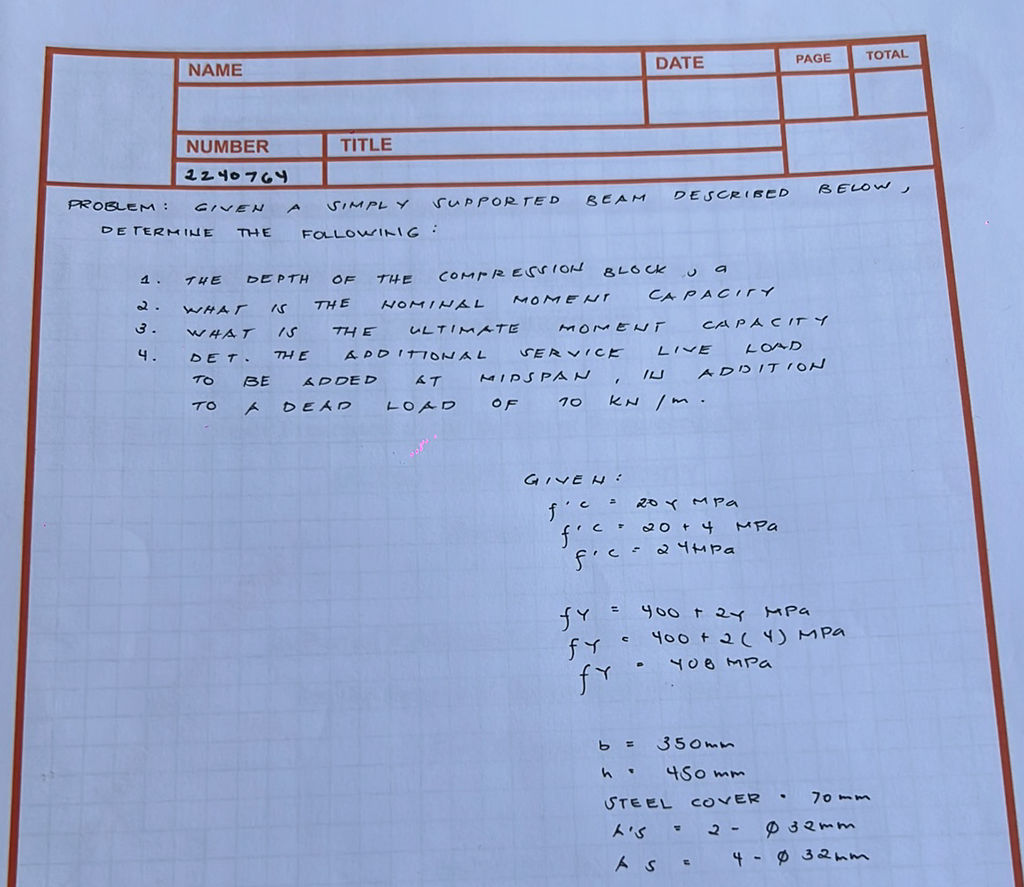 NAME
DATE
PAGE
TOTAL
NUMBER
TITLE
2240764
PROBLEM: GIVEN A SIMPLY SUPPORTED BEAM DESCRIBED BELOW,
DETERMINE THE FOLLOWING:
1. THE DEPTH OF THE COMPRESSION BLOCK, a
2. WHAT IS THE NOMINAL MOMENT CAPACITY
3. WHAT IS THE ULTIMATE MOMENT CAPACITY
4. DET. THE ADDITIONAL SERVICE LIVE LOAD
TO BE ADDED AT MIDSPAN, IN ADDITION
TO A DEAD LOAD OF 10 KN/m.
GIVEN:
f'c = 20Y MPa
f'c = 20 + 4 MPa
f'c = 24MPa
fY = 400 + 2Y MPa
fY = 400 + 2(4) MPa
fY = 408 MPa
b = 350mm
h = 450mm
STEEL COVER = 70mm
A's = 2 - Ø 32mm
As = 4 - Ø 32mm